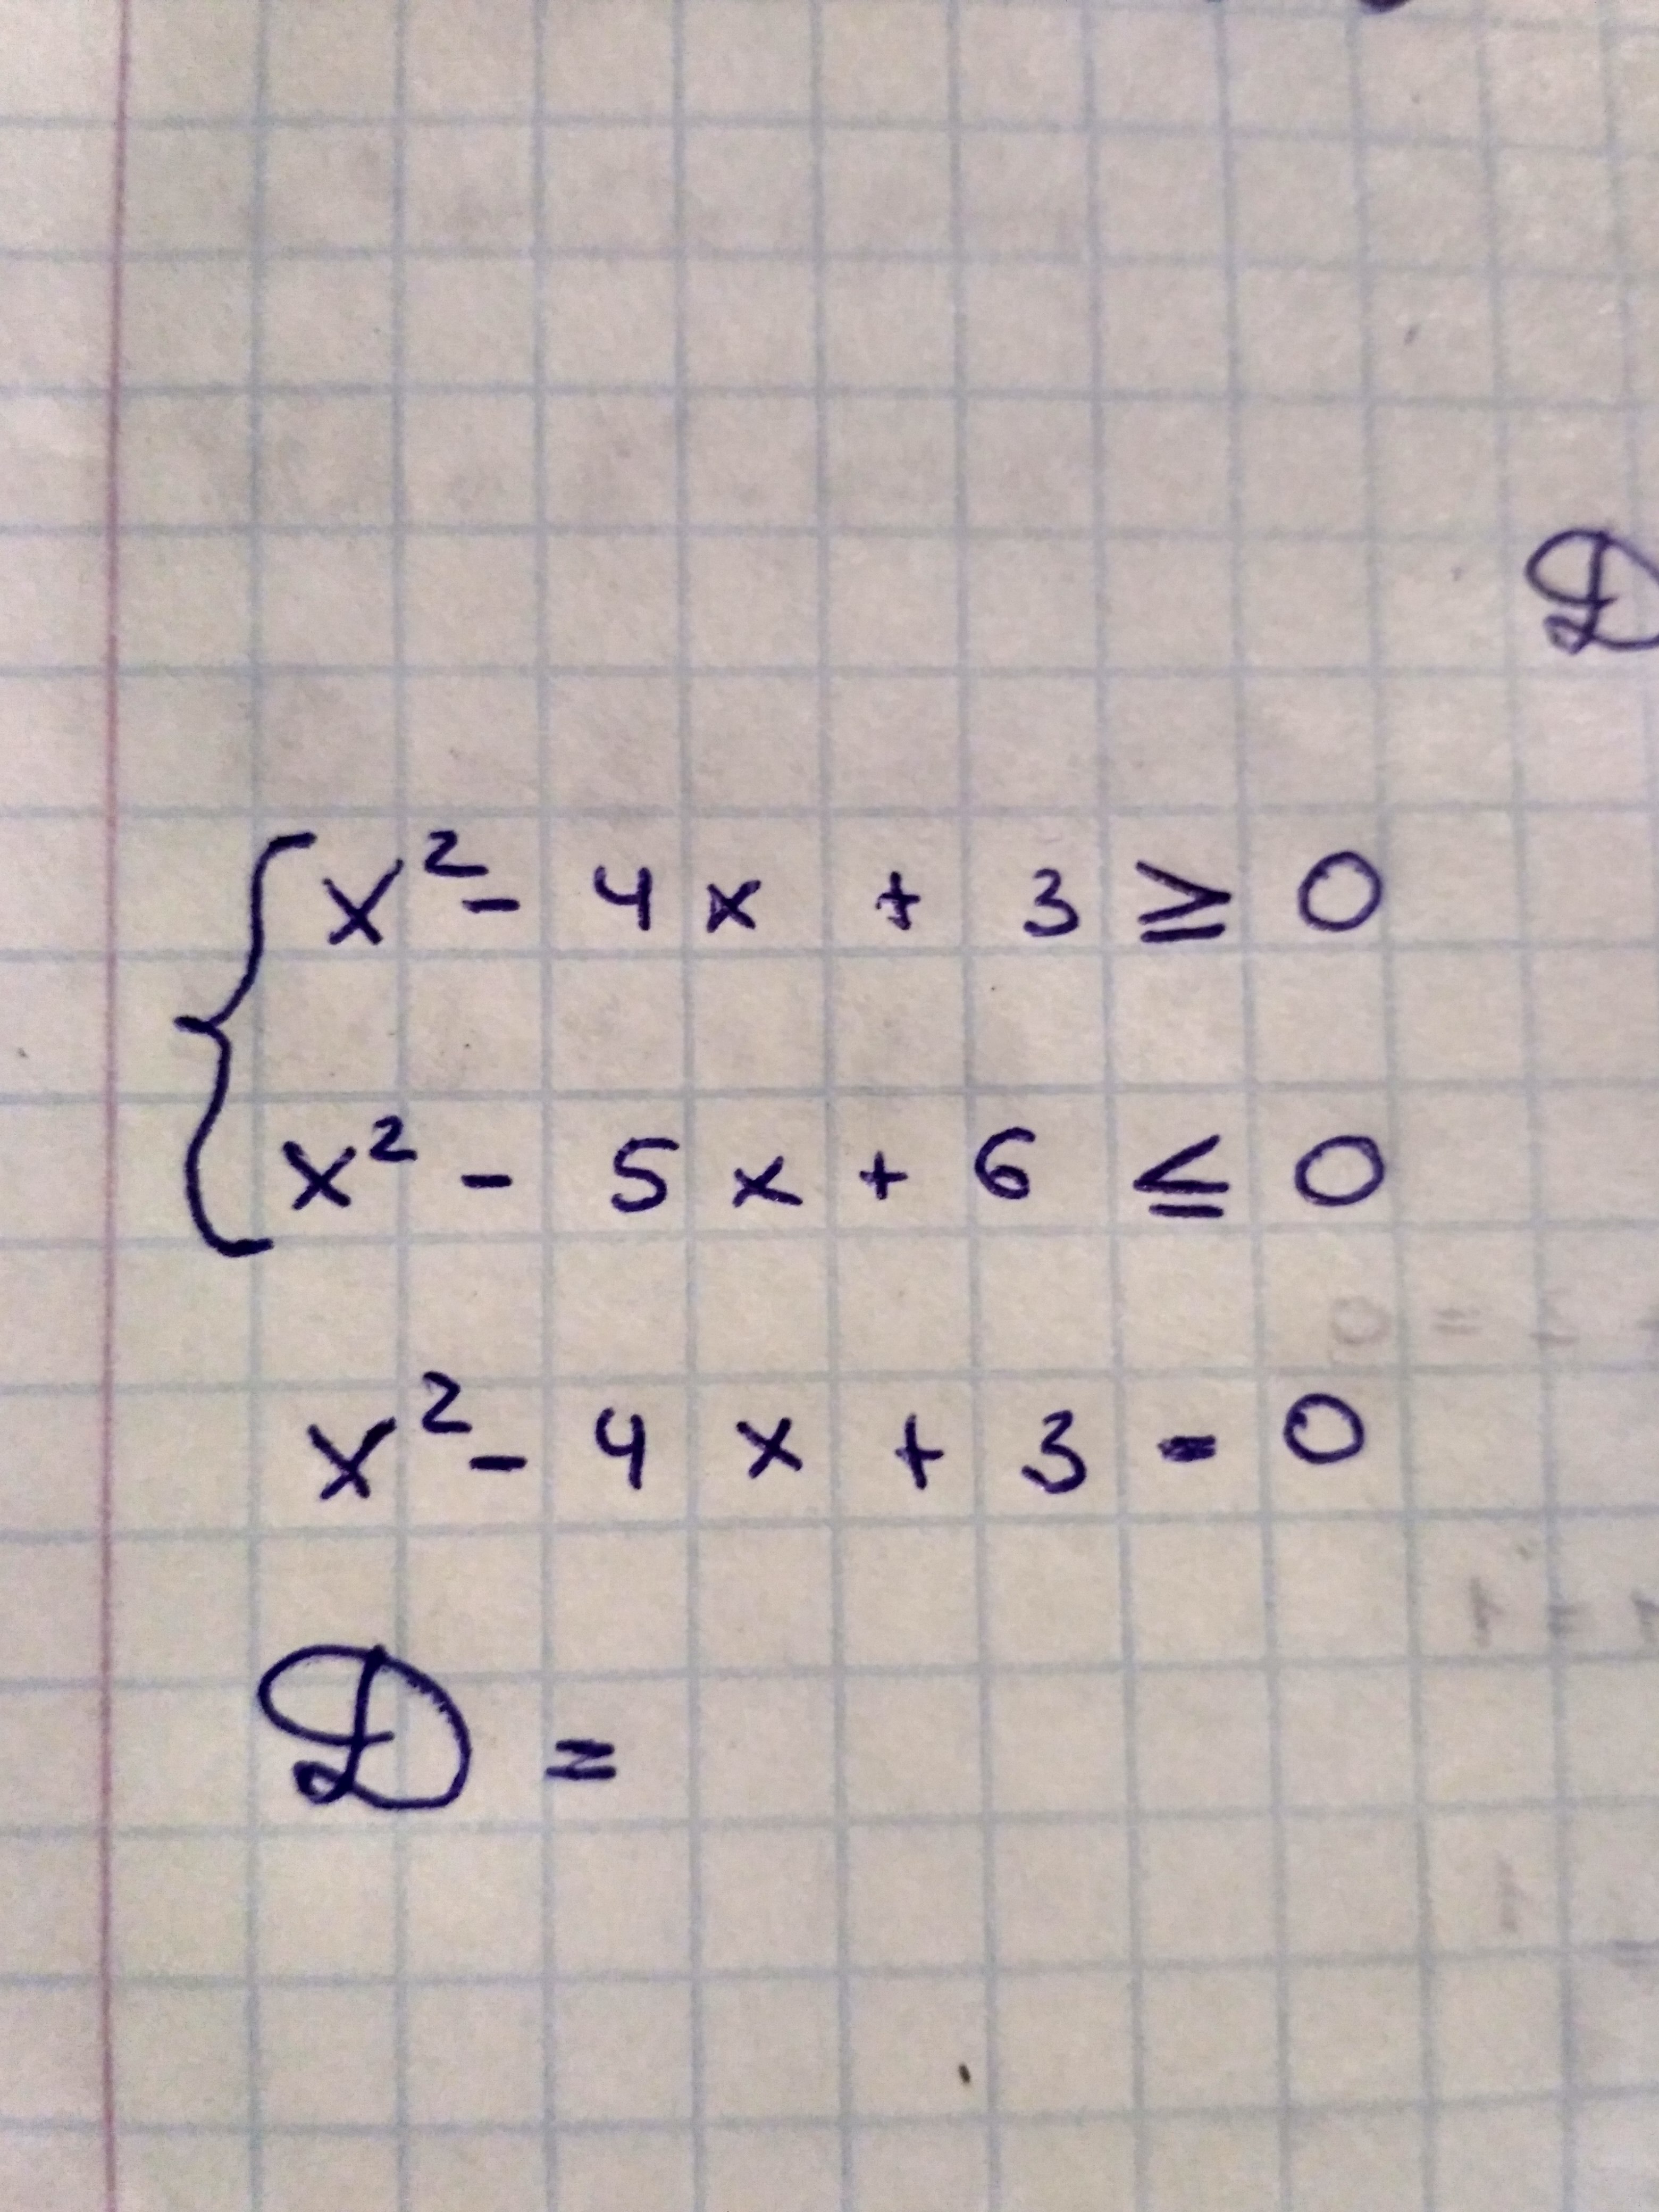 D
x² - 4x + 3 ≥ 0
x² - 5x + 6 ≤ 0
x² - 4x + 3 = 0
D =